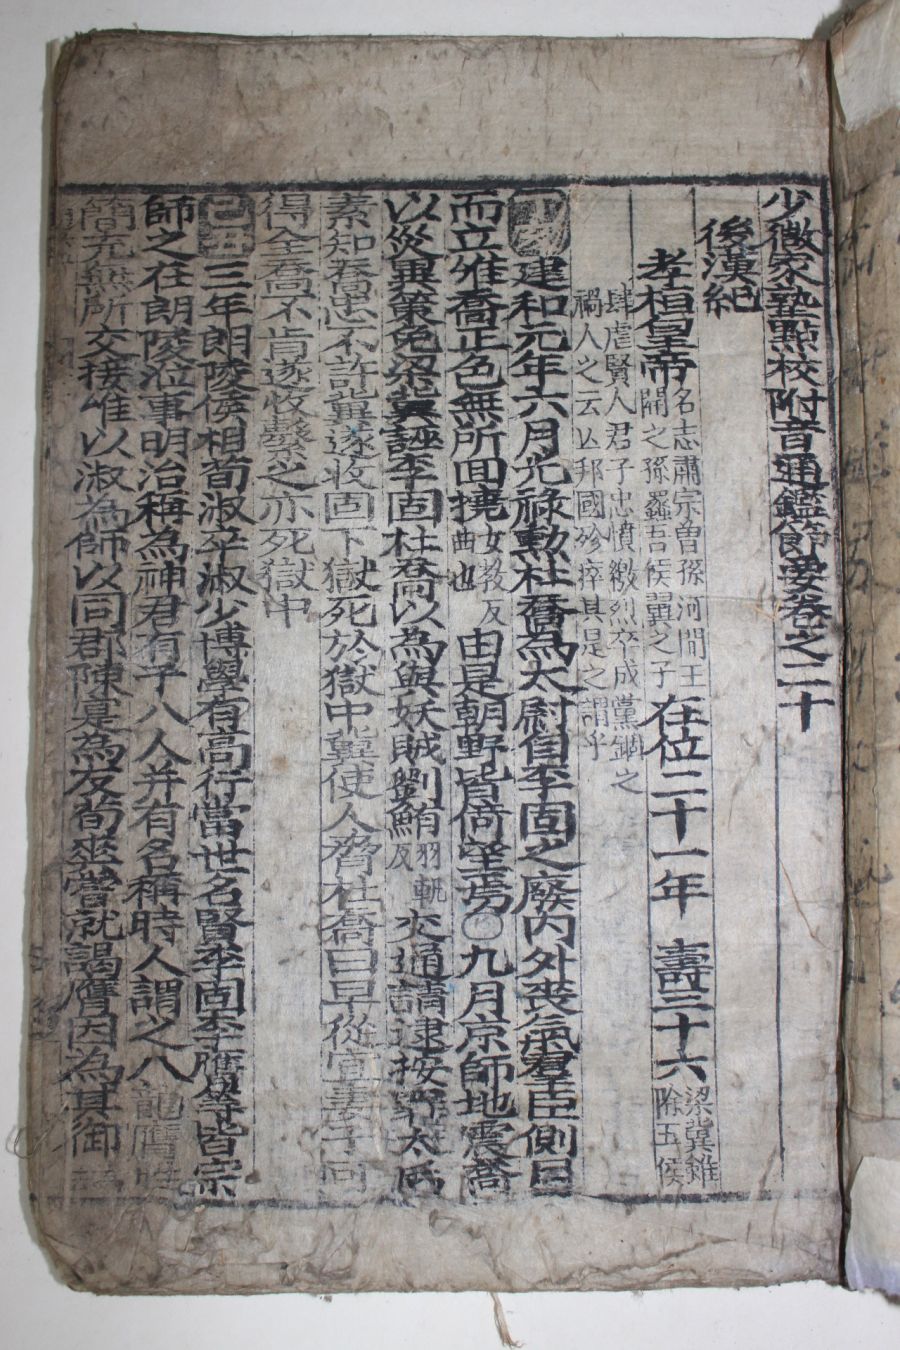 少微家塾點校附音通鑑節要卷之二十
後漢紀
孝桓皇帝 名志肅宗曾孫河間王開之孫蠡吾侯翼之子 在位二十一年 壽三十六 梁冀雖除五侯
肆虐賢人君子忠憤激烈卒成黨錮之禍人之云亾邦國殄瘁其是之謂乎
丁亥 建和元年六月光祿勲杜喬為太尉自李固之廢內外丧氣羣臣側目
而立唯喬正色無所回撓 女教反曲也 由是朝野皆倚望焉○九月京師地震喬
以災異策免梁冀誣李固杜喬以為與妖賊劉鮪 羽軌反 交通請逮按罪太后
素知喬忠不許冀遂收固下獄死於獄中冀使人脅杜喬曰早從宜妻子可
得全喬不肯遂收繫之亦死獄中
己丑 三年朗陵侯相荀淑卒淑少博學有高行當世名賢李固李膺等皆宗
師之在朗陵涖事明治稱為神君有子八人并有名稱時人謂之八龍膺性
簡亢無所交接唯以淑為師以同郡陳寔為友荀爽甞就謁膺因為其御